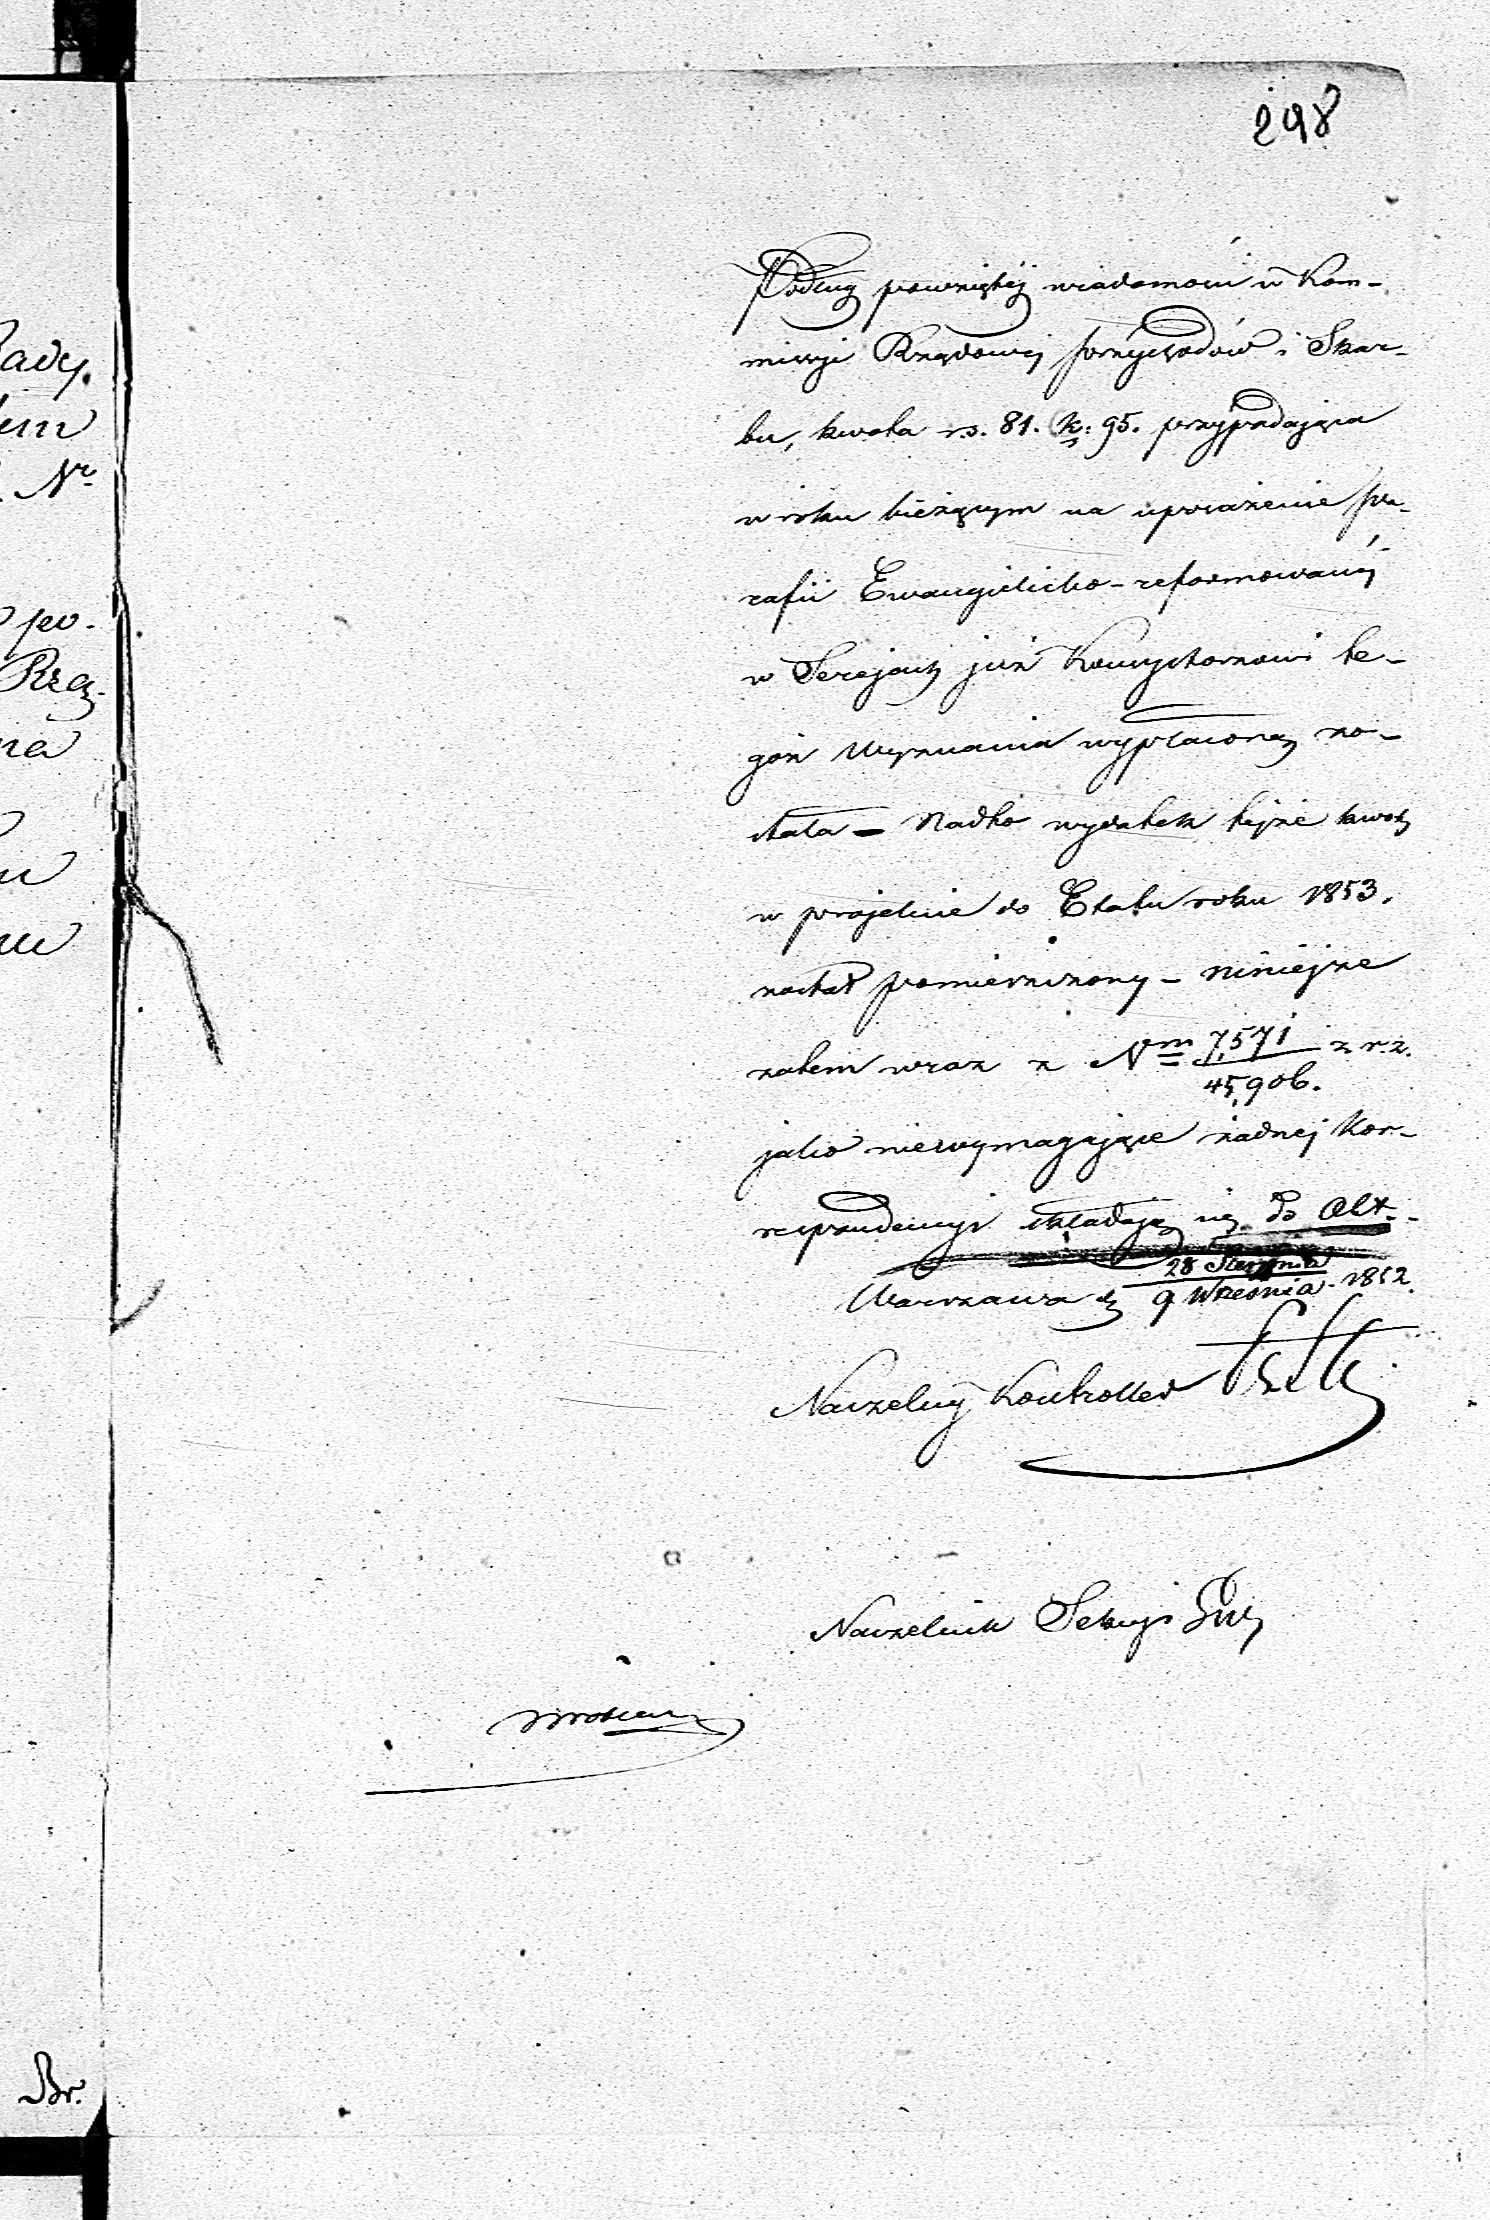 298
Podług powziętéj wiadomości w Kom-
missyi Rządowéj Przychodów i Skar-
bu, kwota rs. 81. k: 95. przypadająca
w roku bieżącym na uposażenie pa-
rafii Ewangielicko-reformowanéj
w Serejach już Konsystorzowi te-
goż Wyznania wypłaconą zo-
stała – Nadto wydatek tejże kwoty
w projekcie do Etatu roku 1853.
został pomieszczony – Niniejsze
zatem wraz z Nem 7,571 z r. z.
45,906.
jako niewymagające żadnej kor-
respondencyi składają się do Akt.
28 Sierpnia
Warszawa d. 9 Września 1852.
Naczelny Kontroller
Naczelnik Sekcyi
ady
em
Nr
po-
Rzą-
na
Br.